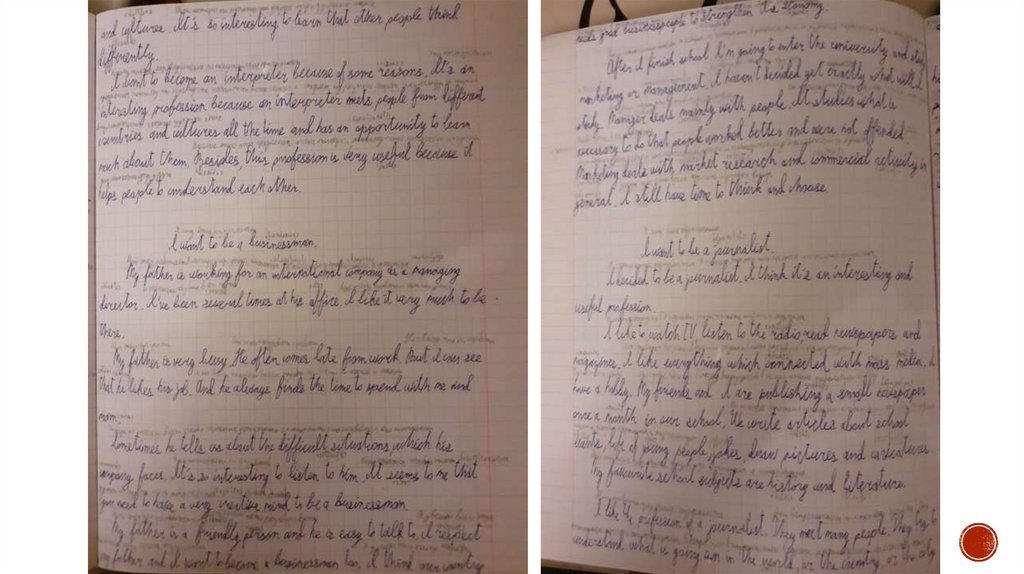 and cultures. It's so interesting to learn that other people think
differently.
I want to become an interpreter because of some reasons. It's an
interesting profession because an interpreter meets people from different
countries and cultures all the time and has an opportunity to learn
much about them. Besides, this profession is very useful because it
helps people to understand each other.
I want to be a businessman.
My father is working for an international company as a managing
director. I've been several times at his office. I like it very much to be
there.
My father is very busy. He often comes late from work. But I can see
that he likes his job. And he always finds the time to spend with me and
mom.
Sometimes he tells us about the difficult situations which his
company faces. It's so interesting to listen to him. It seems to me that
you need to have a very creative mind to be a businessman.
My father is a friendly person and he is easy to talk to, I respect
my father and I want to become a businessman too, I think our country
needs good businesspeople to strengthen its economy.
After I finish school I'm going to enter the university and study
marketing or management. I haven't decided yet exactly what will I
study. Manager deals mainly with people. It studies what is
necessary to do that people worked better and were not offended
Marketing deals with market research and commercial activity in
general. I still have time to think and choose.
I want to be a journalist.
I decided to be a journalist. I think it's an interesting and
useful profession.
I like to watch TV, listen to the radio, read newspapers and
magazines. I like everything which connected with mass media. I
have a hobby. My friends and I are publishing a small newspaper
once a month in our school. We write articles about school
events, life of young people, jokes, draw pictures and caricatures.
My favourite school subjects are history and literature.
I like the profession of a journalist. They meet many people. They try to
understand what is going on in the world, or the country, or the city